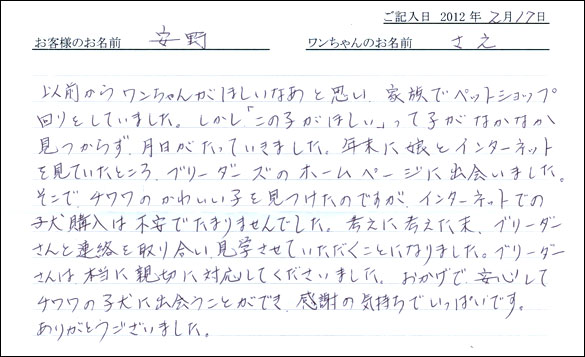 ご記入日 2012年 2月17日
お客様のお名前 安野 ワンちゃんのお名前 さえ
以前からワンちゃんがほしいなあと思い、家族でペットショップ
回りをしていました。しかし「この子がほしい」って子がなかなか
見つからず、月日がたっていきました。年末に娘とインターネット
を見ていたところ、ブリーダーズのホームページに出会いました。
そこで、チワワのかわいい子を見つけたのですが、インターネットでの
子犬購入は不安でたまりませんでした。考えに考えた末、ブリーダー
さんと連絡を取り合い、見学させていただくことになりました。ブリーダー
さんは本当に親切に対応してくださいました。おかげで、安心して
チワワの子犬に出会うことができ、感謝の気持ちでいっぱいです。
ありがとうございました。